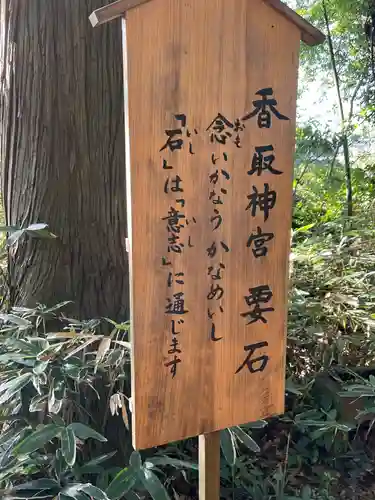 香取神宮要石
念いかなうかなめいし
「石」は「意志」に通じます